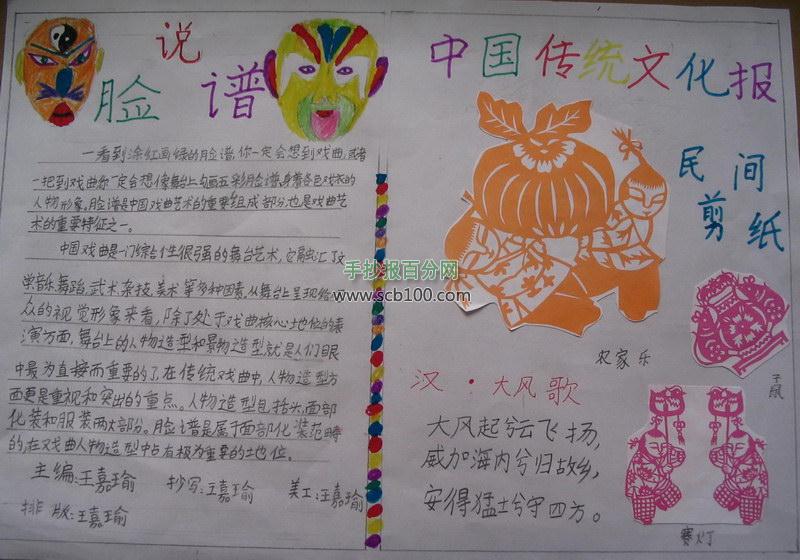 说
脸谱
一看到涂红画绿的脸谱,你一定会想到戏曲,或者
一把到戏曲你一定会想像舞台上勾画五彩脸谱,身着各色戏衣的
人物形象。脸谱是中国戏曲艺术的重要组成部分也是戏曲艺
术的重要特征之一。
中国戏曲是一门综合性很强的舞台艺术,它融汇了文
学音乐舞蹈,武术杂技,美术等多种因素,从舞台上呈现给
众的视觉形象来看,除了处于戏曲核心地位的表
演方面,舞台上的人物造型和景物造型就是人们眼
中最为直接而重要的了,在传统戏曲中,人物造型方
面更是重视和突出的重点。人物造型包括头面部
化装和服装两大部份。脸谱是属于面部化装范畴
的,在戏曲人物造型中占有极为重要的地位。
主编:王嘉瑜 抄写:王嘉瑜 美工:王嘉瑜
排版:王嘉瑜
手抄报百分网
www.scb100.com
中国传统文化报
民间
剪纸
农家乐
子鼠
汉·大风歌
大风起兮云飞扬,
威加海内兮归故乡,
安得猛士兮守四方。
赛灯